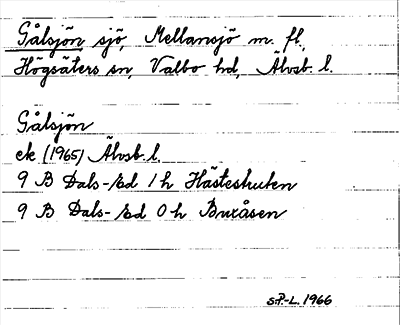 Gålsjön sjö, Mellansjö m. fl.,
Högsäters sn, Valbo hd, Älvsb. l.
Gålsjön
ek (1965) Älvsb. l.
9 B Dals-Ed 1 h Hästeskuten
9 B Dals-Ed 0 h Buxåsen
S.P.-L. 1966